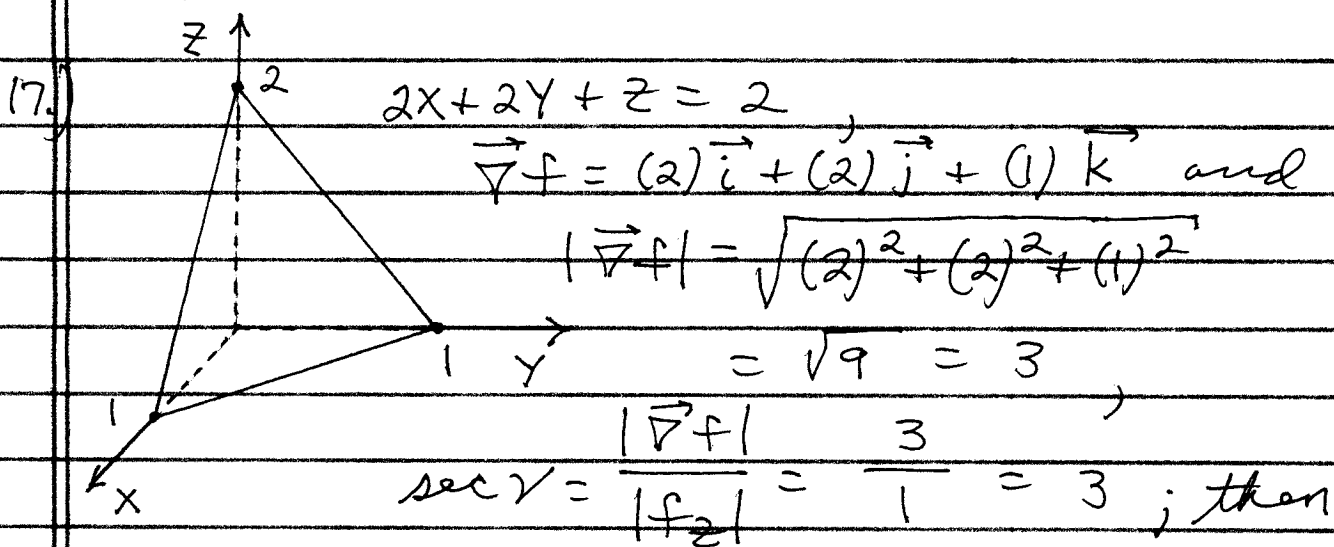 Z
17.) 2 2X + 2Y + Z = 2,
∇⃗f = (2) i⃗ + (2) j⃗ + (1) k⃗ and
|∇⃗f| = √((2)² + (2)² + (1)²)
1 Y = √9 = 3,
1
X sec γ = |∇⃗f| / |f_z| = 3/1 = 3 ; then